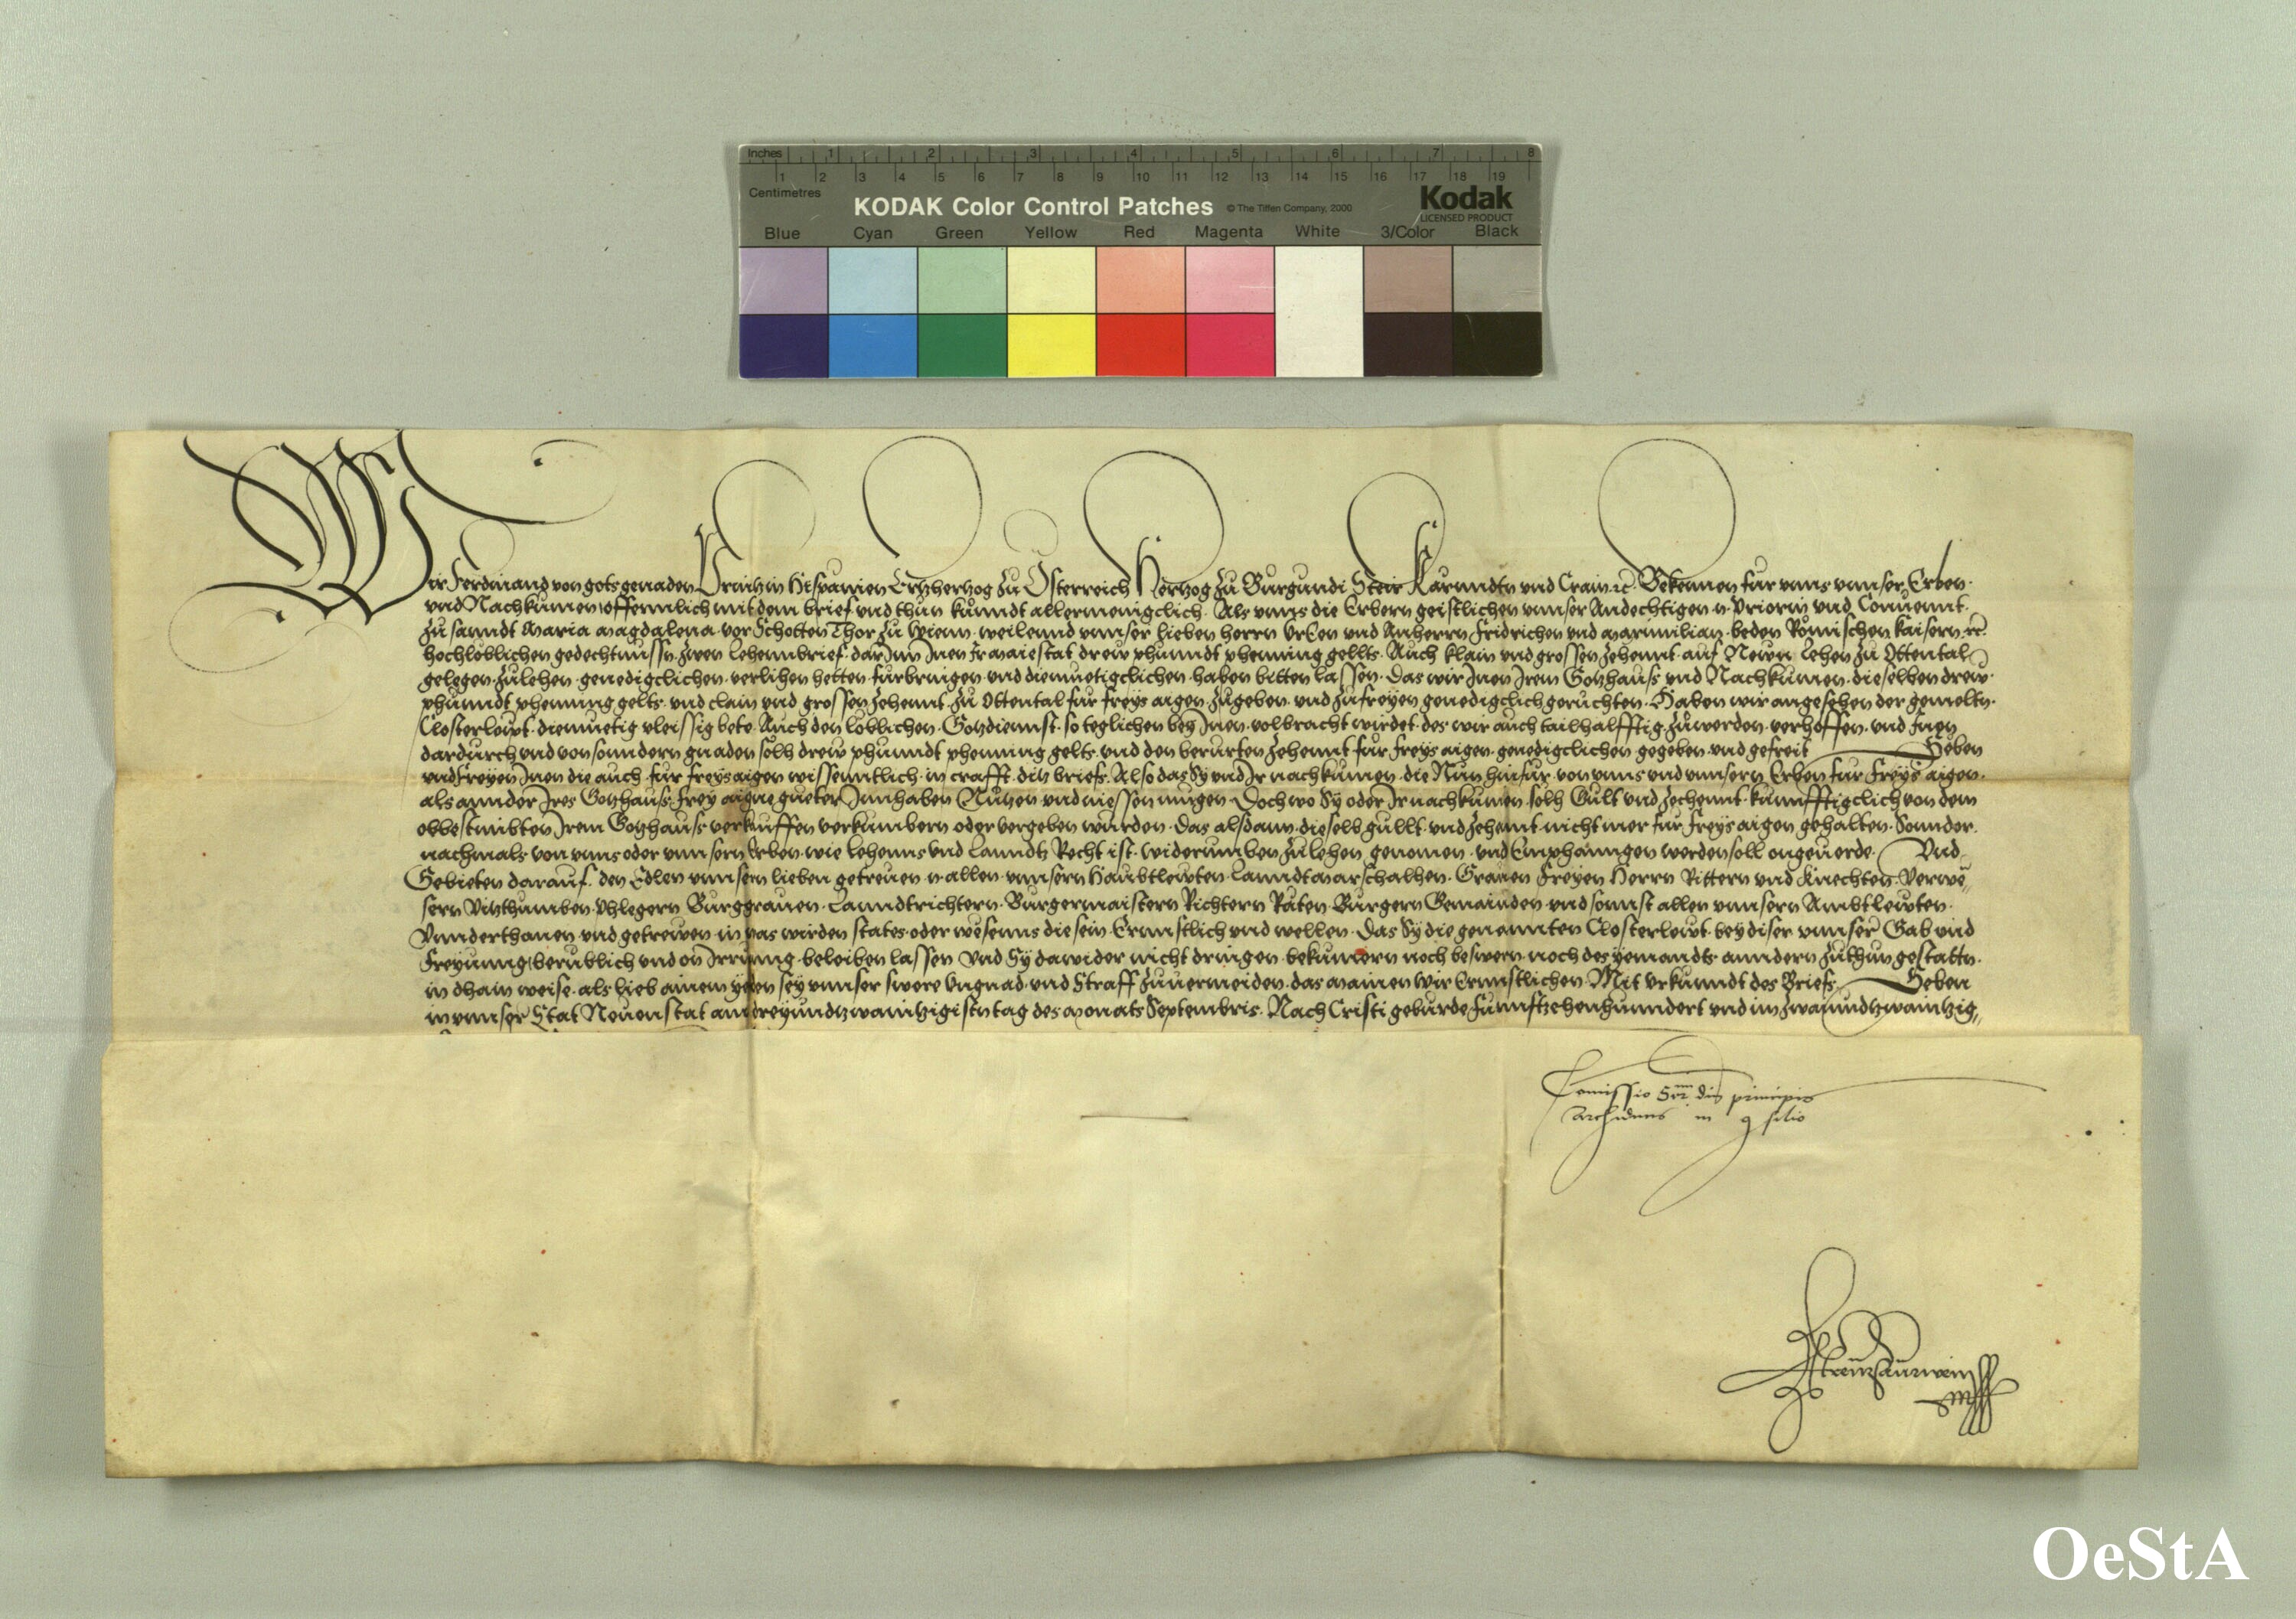 Inches 1 2 3 4 5 6 7 8
1 2 3 4 5 6 7 8 9 10 11 12 13 14 15 16 17 18 19
Centimetres
KODAK Color Control Patches © The Tiffen Company, 2000 Kodak
LICENSED PRODUCT
Blue Cyan Green Yellow Red Magenta White 3/Color Black
Wir Ferdinand von gots genaden Printz in Hispanien Ertzhertzog zu Österreich Hertzog zu Burgundi Steir Kärnndtn und Crain rc. Bekennen fur unns unnser Erben.
und Nachkumen offennlich mit dem brief und thun kunndt allermenigclich. Als unns die Erbern geistlichen unnser Andechtigen n. Priorin und Connennt.
zu sanndt Maria Magdalena vor Schotten Thor zu Wienn. weilennd unnser lieben herrn Urien und Anherrn Fridrichen und Maximilian. beden Römischen kaisern rc.
hochloblichen gedechtnussn. zwen Lehennbrief. darInn Inen Ir Maiestat drew phunndt phenning gellts. Auch klain und grossen zehennt. auf Newn Lehen zu Ottental
gelegen. zu lehen genedigclichen verlihen hetten furbringen und diemuetigclichen haben bitten lassen. Das wir Inen Irem Gotzhauss und Nachkumen. dieselben drew.
phunndt phenning gelts. und clain und grossen zehennt zu Ottental fur freys aigen zugeben. und zufreyen genedigclich geruchten. Haben wir angesehen der gemeltn.
Closterlewt. diemuetig vleissig bete. Auch den loblichen. Gotzdiennst. so teglichen bey Inen volbracht wirdet. des wir auch tailhalfftig zuwerden verhoffen. und Inen
dardurch und von sonndern gnaden solh drew phunndt phenning gelts. und den berurten zehennt fur freys aigen genedigclichen gegeben und gefreit Geben
und freyen Inen die auch fur freys aigen wissenntlich in crafft ditz briefs. Also das Sy und Ir nachkumen. die Nun hinfur von unns und unnsern Erben fur freys aigen.
als annder Ires Gotzhauss frey aigne gueter Innhaben Nutzen und niessen mugen Doch wo Sy oder Ir nachkumen solh Gult und zechennt. kunfftigclich von dem
obbestimbten Irem Gotzhauss verkauffen verkumbern oder vergeben wurden. Das alsdann. dieselb gullt und zehennt nicht mer fur freys aigen gehalten. Sonnder.
nachmals von unns oder unnsern Erben. wie lehenns und Lanndtz Recht ist. widerumben zu lehen genomen und Emphanngen werden soll ongeuerde. Und
Gebieten darauf. den Edlen unnsern lieben getreuen n. allen unnsern Haubtlewten. Lanndtmarschalhen. Grauen Freyen Herrn Rittern und Knechten. Verwe
sern Vitzthumben. Phlegern Burggrauen. Lanndtrichtern. Burgermaistern Richtern Räten Burgern Gemainden und sonnst allen unnsern Ambtlewten.
Unnderthanen und getrewen in was wirden states oder wesenns die sein. Ernnstlich und wellen. Das Sy die genannten Closterlewt. bey diser unnser Gab und
Freyunng berublich und on Irrunng beleiben lassen Und Sy dawider nicht dringen. bekumern noch beswern noch des yemandts anndern zuthun gestattn.
in dhain weise. als lieb ainem yeden sey unnser swere ungnad und Straff zuuermeiden. das mainen wir Ernnstlichen. Mit Urkunndt des Briefs Geben
in unnser Stat Neuenstat am dreyundtzwaintzigistn tag des Monats Septembris. Nach Cristi geburde Funnfftzehenhunndert und im zwaiundtzwaintzig
Comissio Ser^mi dni principis
Archiducis in 9silio
Treitzsaurwein
OeStA